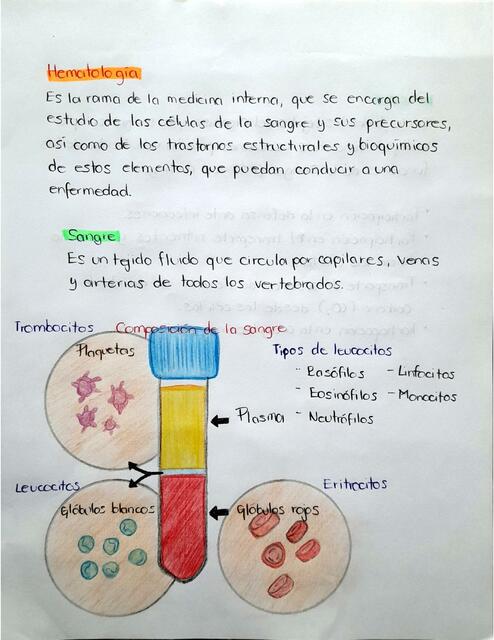 Hematología
Es la rama de la medicina interna, que se encarga del
estudio de las células de la sangre y sus precursores,
así como de los trastornos estructurales y bioquímicos
de estos elementos, que puedan conducir a una
enfermedad.
Sangre
Es un tejido fluido que circula por capilares, venas
y arterias de todos los vertebrados.
Trombocitos
Composición de la sangre
Plaquetas
Tipos de leucocitos
- Basófilos - Linfocitos
- Eosinófilos - Monocitos
- Neutrófilos
Plasma
Leucocitos
Glóbulos blancos
Eritrocitos
Glóbulos rojos